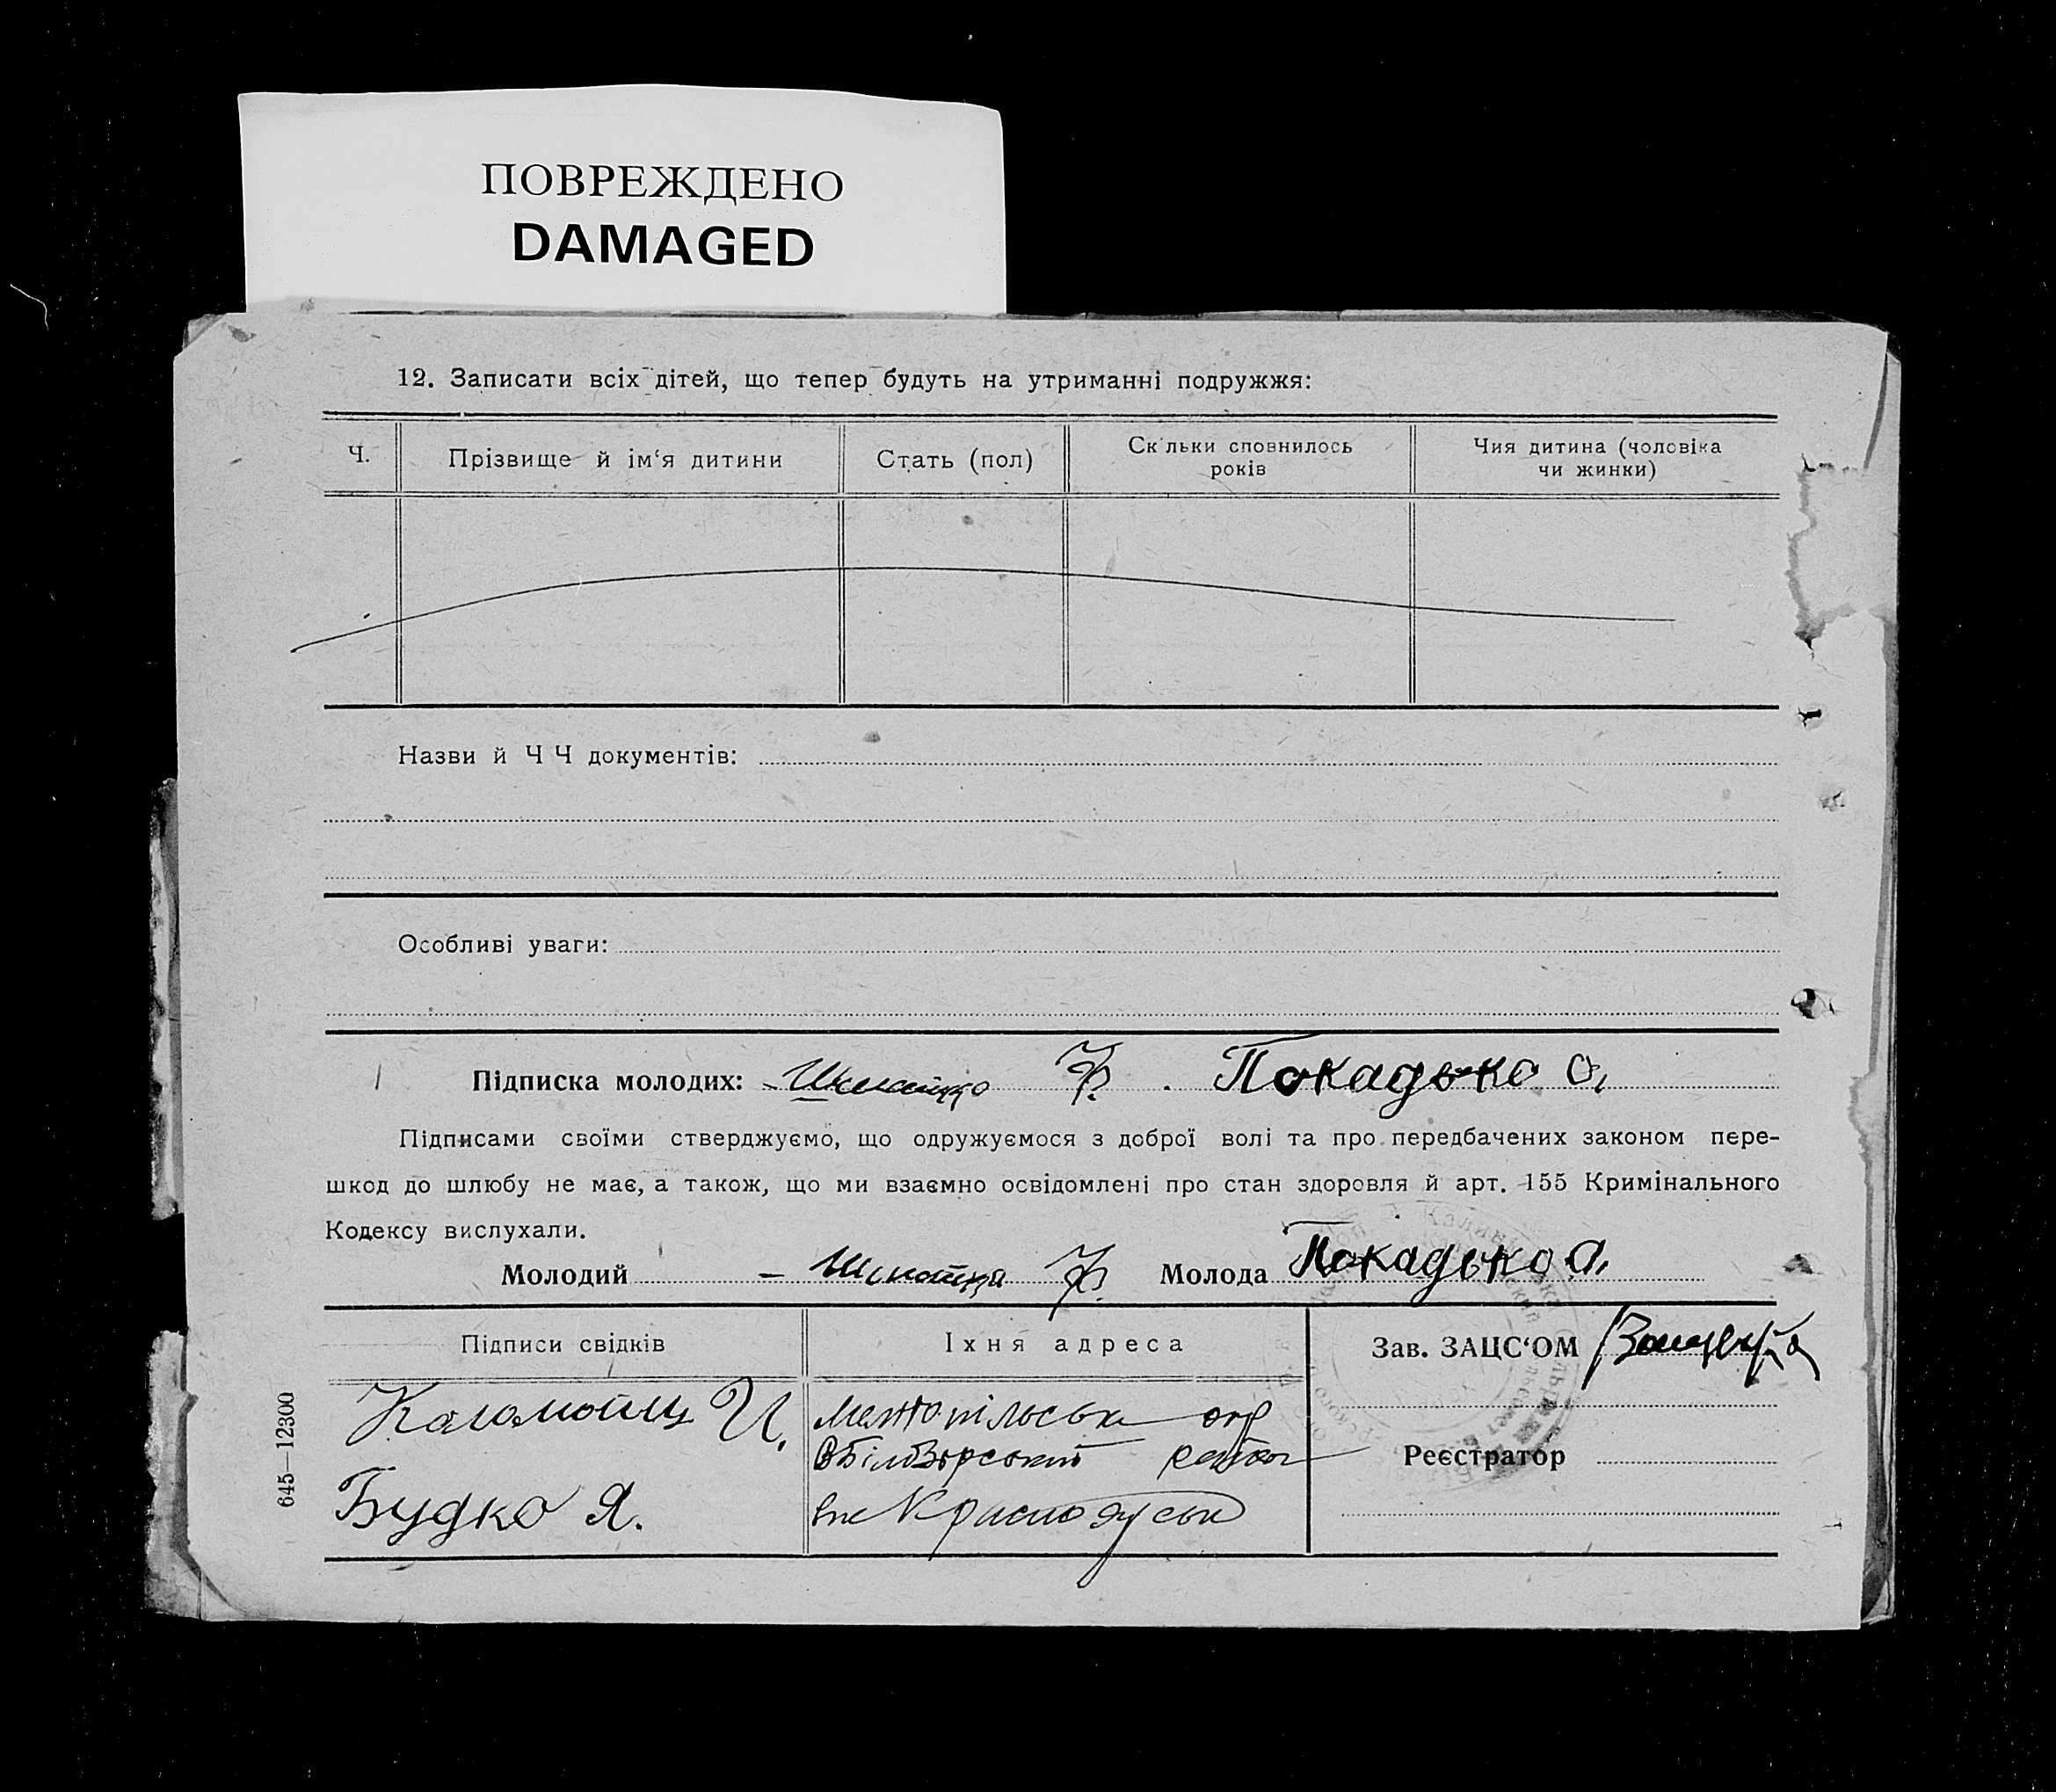 ПОВРЕЖДЕНО
DAMAGED
12. Записати всіх дітей, що тепер будуть на утриманні подружжя:
Ч. Прізвище й ім‘я дитини Стать (пол) Скільки сповнилось років Чия дитина (чоловіка чи жинки)
Назви й Ч Ч документів:
Особливі уваги:
Підписка молодих: Ф. Покадько О.
Підписами своїми стверджуємо, що одружуємося з доброї волі та про передбачених законом пере-
шкод до шлюбу не має, а також, що ми взаємно освідомлені про стан здоровля й арт. 155 Кримінального
Кодексу вислухали.
Молодий Ф. Молода Покадько О.
Підписи свідків Їхня адреса Зав. ЗАЦС‘ОМ
И.
район
Реєстратор
Будко Я.
645—12300